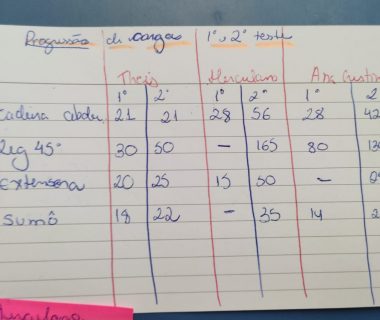 Progressão de cargas 1º e 2º teste
Thais Herculano Ana Cristin
1º 2º 1º 2º 1º 2
Cadeira abdu. 21 21 28 56 28 42
Leg 45° 30 50 - 165 80 130
Extensora 20 25 15 50 -
Sumô 18 22 - 35 14 2
Herculano